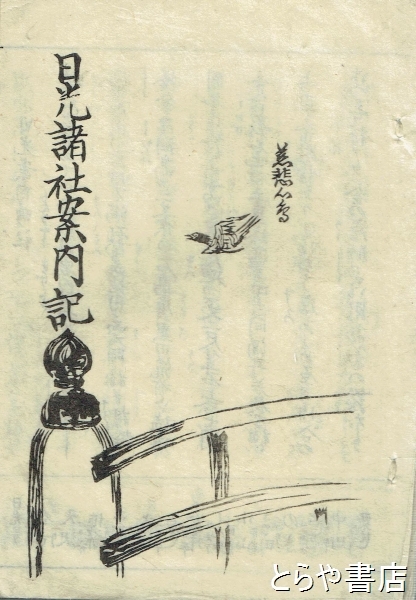 慈悲心鳥
日光諸社案内記
とらや書店